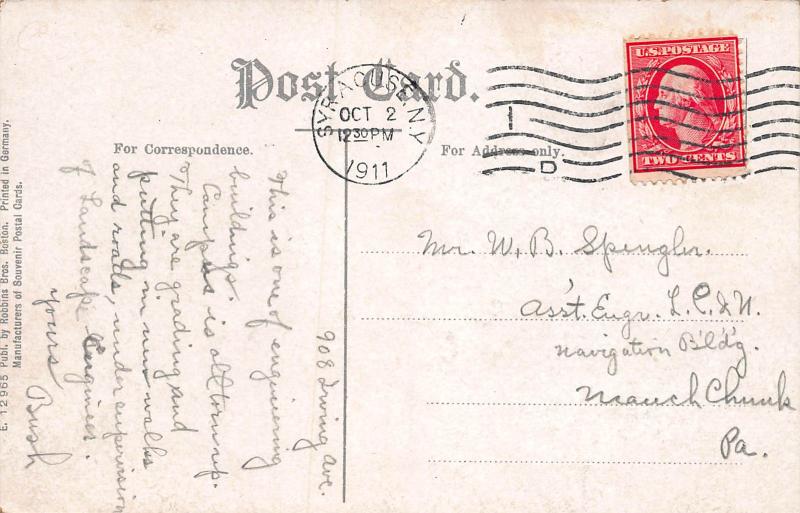 Post Card.
SYRACUSE, N.Y.
OCT 2
12 30 PM
1911
1
D
U.S. POSTAGE
TWO CENTS
For Correspondence.
For Address only.
908 Irving Ave.
This is one of engineering
buildings.
Campus is all torn up.
They are grading and
putting in new walks
and roads, under supervision
of Landscape Engineer.
Yours
Bush
Mr. W. B. Spengler.
Ass't. Engr. L. C. & N.
Navigation B'l'd'g.
Mauch Chunk
Pa.
E. 12965 Publ. by Robbins Bros. Boston. Printed in Germany.
Manufacturers of Souvenir Postal Cards.